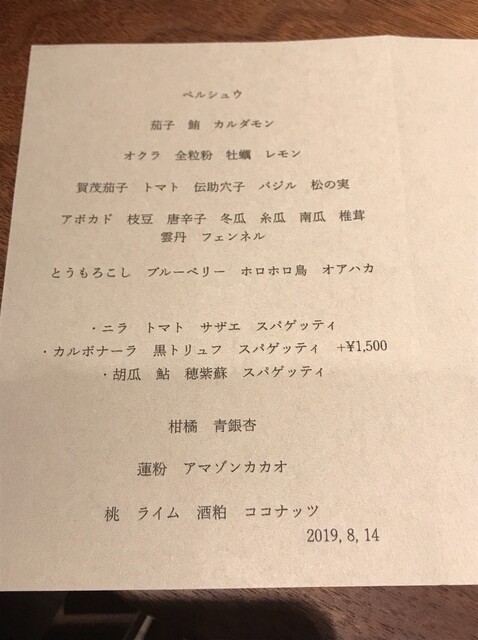 ペルシュウ
茄子 鮪 カルダモン
オクラ 全粒粉 牡蠣 レモン
賀茂茄子 トマト 伝助穴子 バジル 松の実
アボカド 枝豆 唐辛子 冬瓜 糸瓜 南瓜 椎茸
雲丹 フェンネル
とうもろこし ブルーベリー ホロホロ鳥 オアハカ
・ニラ トマト サザエ スパゲッティ
・カルボナーラ 黒トリュフ スパゲッティ +¥1,500
・胡瓜 鮎 穂紫蘇 スパゲッティ
柑橘 青銀杏
蓮粉 アマゾンカカオ
桃 ライム 酒粕 ココナッツ
2019, 8, 14